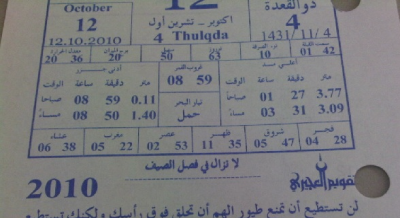 October 12 ذو القعدة
12 أكتوبر - تشرين أول 4
12.10.2010 4 Thulqda 1431/11/4
20 36 20 50 63 10 01 42
أدنى جزر غروب القمر أعلى مد
الوقت دقيقة ساعة متر 08 59 الوقت دقيقة ساعة متر
صباحاً 08 59 0.11 تيار البحر صباحاً 01 27 3.77
مساءً 08 50 1.40 حمل مساءً 03 31 3.09
عشاء مغرب عصر ظهر شروق فجر
06 38 05 22 02 53 11 35 05 47 04 28
لا نزال في فصل الصيف
2010 تقويم العجيري
لن تستطيع أن تمنع طيور الهم أن تحلق فوق رأسك ولكنك تستطيع